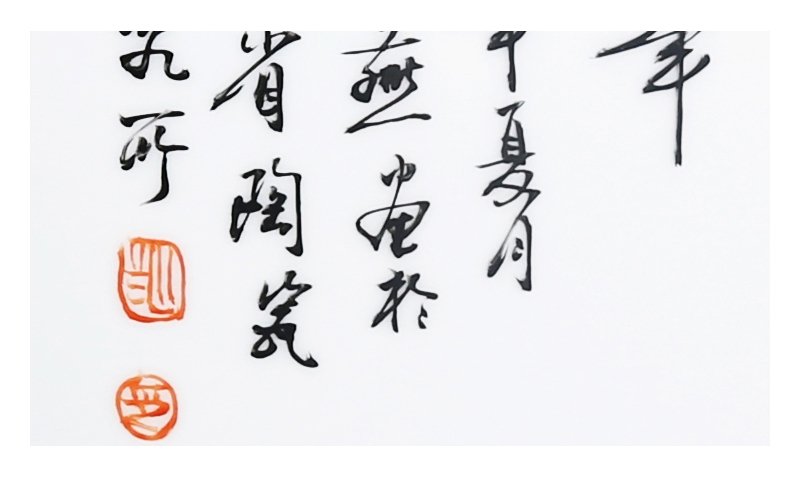 年
夏月
燕画於
省陶瓷
究所